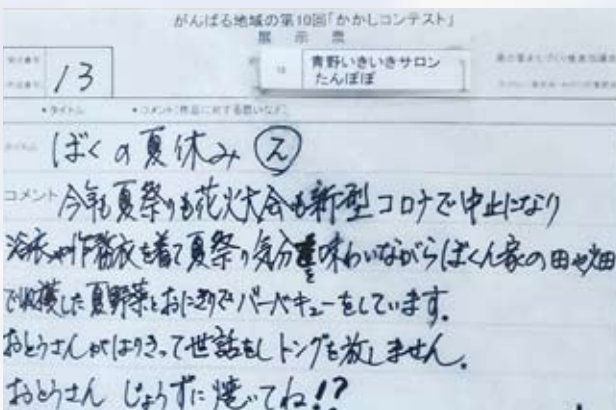 がんばる地域の第10回「かかしコンテスト」
展示票
13
青野いきいきサロン
たんぽぽ
・タイトル ・コメント(作品に対する思いなど)
ぼくの夏休み ②
コメント 今年も夏祭りも花火大会も新型コロナで中止になり
浴衣や作務衣を着て夏祭り気分を味わいながらぼくん家の田や畑
で収穫した夏野菜とおにぎりでバーベキューをしています。
おとうさんがはりきって世話をしトングを放しません。
おとうさん じょうずに焼いてね!?